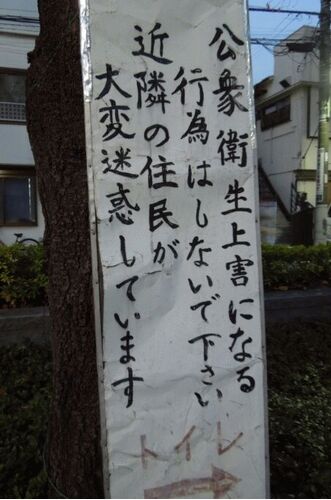 公衆衛生上害になる
行為はしないで下さい
近隣の住民が
大変迷惑しています
トイレ
→